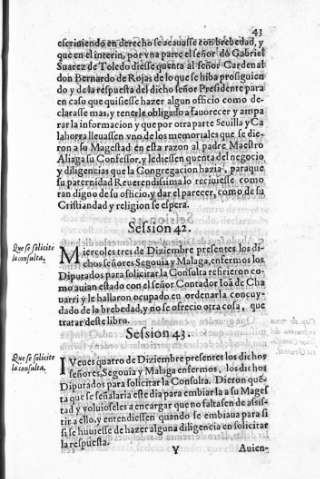 43
escriuiendo en derecho se acauasse con brebedad, y
que en el interin, por vna parte el señor dõ Gabriel
Suarez de Toledo diesse quenta al señor Cardenal
don Bernardo de Rojas de lo que se hiba prosiguien
do y de la respuesta del dicho señor Presidente para
en caso que quisiesse hazer algun officio como de-
clarasse mas, y tenerle obligado a fauorecer y ampa
rar la informacion y que por otra parte Seuilla y Ca
lahorra lleuassen vno de los memoriales que se die-
ron a su Magestad en esta razon al padre Maestro
Aliaga su Confessor, y le diessen quenta del negocio
y diligencias que la Congregacion hazia, paraque
su paternidad Reuerendissima lo recuiesse como
tan digno de su officio, y dar el parecer, como de su
Cristiandad y religion se espera.
Session 42.
Que se solicite
la consulta.
Miercoles tres de Diziembre presentes los di-
chos señores Segouia y Malaga, enfermos los
Diputados para solicitar la Consulta refirieron co-
mo auian estado con el señor Contador Ioã de Cha
uarri y le hallaron ocupado en ordenarla con cuy-
dado de la brebedad, y no se ofrecio otra cosa, que
tratar deste libro.
Session 43.
Que se solicite
la consulta.
IVeues quatro de Diziembre presentes los dichos
señores, Segouia y Malaga enfermos, los dichos
Diputados para solicitar la Consulta. Dieron quẽ-
ta que se señalaria este dia para embiarla a su Mages
tad y voluioseles a encargar que no faltasen de assis-
tir a ello, y entendiessen quando se embiaua para si
si se huuiesse de hazer alguna diligencia en solicitar
la respuesta.
Y
Auien-